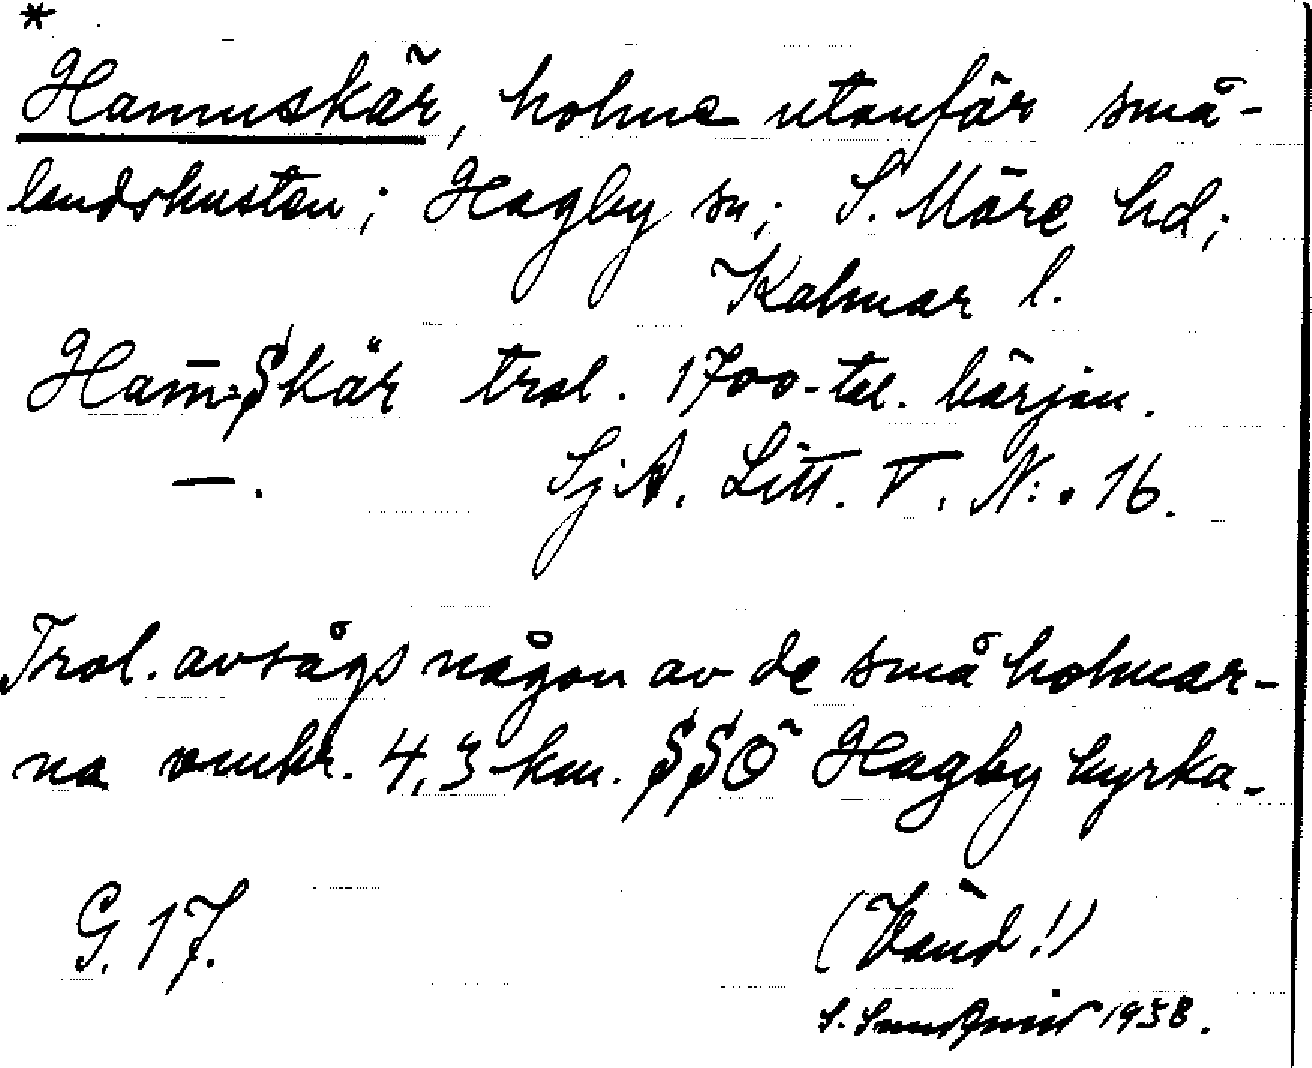 *
Hamnskär, holme utanför små-
landskusten; Hagby sn; S. Möre hd;
Kalmar l.
Ham̄:Skär trol. 1700-tal. början.
—. SjA. Litt. V. N:o 16.
Trol. avsågs någon av de små holmar-
na omkr. 4,3 km. SSÖ Hagby kyrka.
G. 17. (Vänd!)
S. 1958.